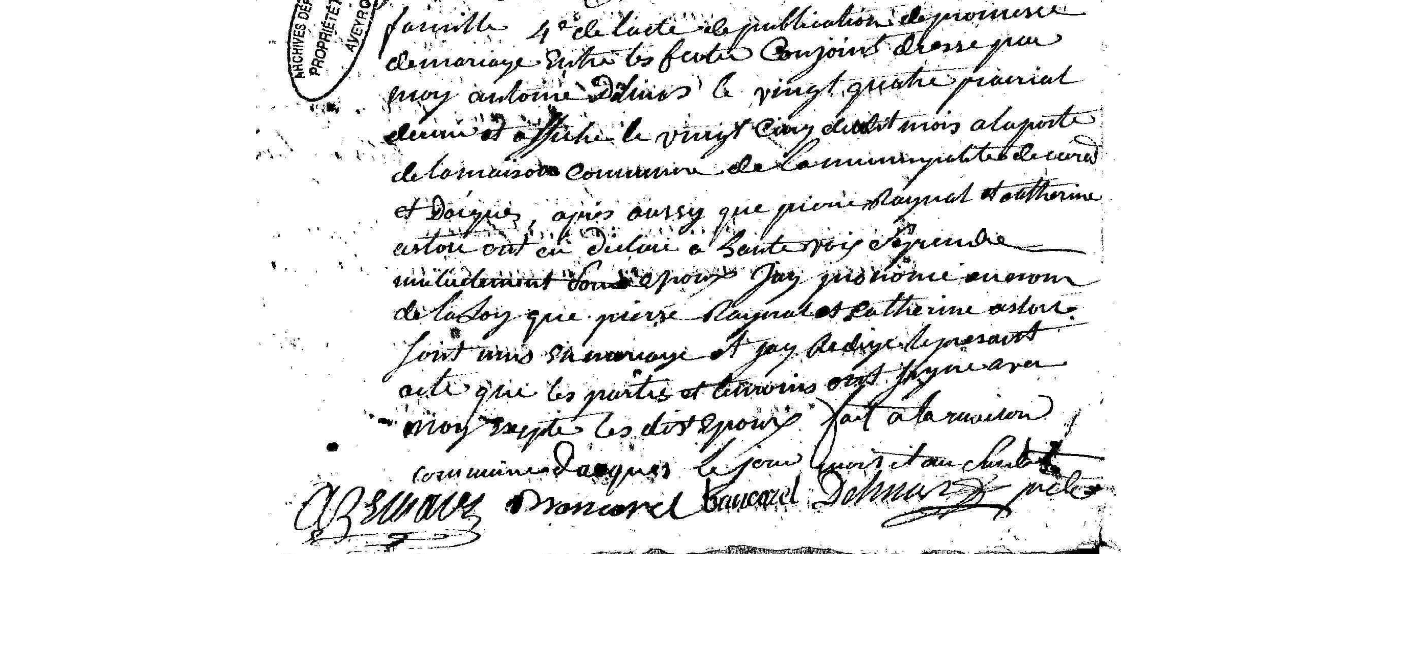 ARCHIVES DÉP
PROPRIÉTÉ
AVEYRO
famille 4° de lacte de publication de promesse
de mariage Entre les futurs Conjoints dresse par
moy antoine Delmas le vingt quatre prairial
dernier et affiche le vingt Cinq dudit mois a la porte
de la maison Commune de la municipalite de
et Dacques, apres aussy que pierre Raynal et catherine
astore ont eu declare a haute voix Se prendre
mutuelement pour epoux Jay prononcé au nom
de la Loy que pierre Raynal et Catherine astore
Sont unis En mariage et jay Redigé le presant
acte que les parties et temoins ont Signe avec
moy Excepte les dits Epoux fait a la maison
commune Dacques le jour mois et an Susdit
Bancarel bancarel Delmas